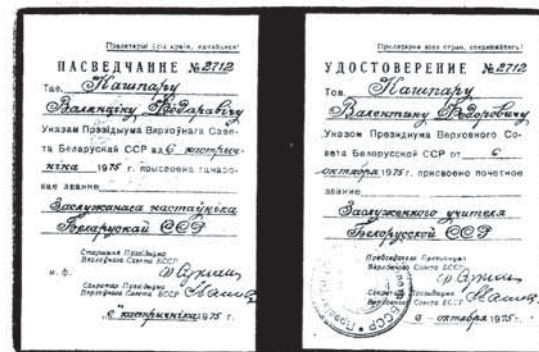 Пралетарыі ўсіх краін, яднайцеся!
ПАСВЕДЧАННЕ № 2712
Тав. Кашпару
Валянціну Фёдаравічу
Указам Прэзідыума Вярхоўнага Саве-
та Беларускай ССР ад 6 кастрыч-
ніка 1975 г. прысвоена ганаро-
вае званне
Заслужанага настаўніка
Беларускай ССР
Старшыня Прэзідыума
Вярхоўнага Савета БССР
м. п.
Сакратар Прэзідыума
Вярхоўнага Савета БССР
6 кастрычніка 1975 г.
Пролетарии всех стран, соединяйтесь!
УДОСТОВЕРЕНИЕ № 2712
Тов. Кашпару
Валентину Фёдоровичу
Указом Президиума Верховного Со-
вета Белорусской ССР от 6
октября 1975 г. присвоено почетное
звание
Заслуженного учителя
Белорусской ССР
Председатель Президиума
Верховного Совета БССР
Секретарь Президиума
Верховного Совета БССР
6 октября 1975 г.